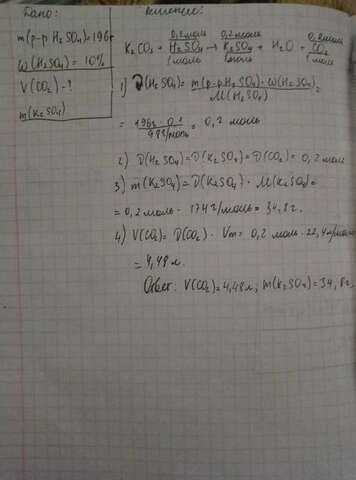 Дано:
Решение:
m(р-р H₂SO₄)=196г
ω(H₂SO₄) = 10%
V(CO₂) - ?
m(K₂SO₄)
0,2 моль 0,2 моль 0,2 моль
K₂CO₃ + H₂SO₄ → K₂SO₄ + H₂O + CO₂
1 моль 1 моль 1 моль
1) ν(H₂SO₄) = m(р-р H₂SO₄) · ω(H₂SO₄) / M(H₂SO₄) =
= 196г · 0,1 / 98г/моль = 0,2 моль
2) ν(H₂SO₄) = ν(K₂SO₄) = ν(CO₂) = 0,2 моль
3) m(K₂SO₄) = ν(K₂SO₄) · M(K₂SO₄) =
= 0,2 моль · 174 г/моль = 34,8 г.
4) V(CO₂) = ν(CO₂) · Vm = 0,2 моль · 22,4 л/моль
= 4,48 л.
Ответ: V(CO₂) = 4,48 л; m(K₂SO₄) = 34,8 г.